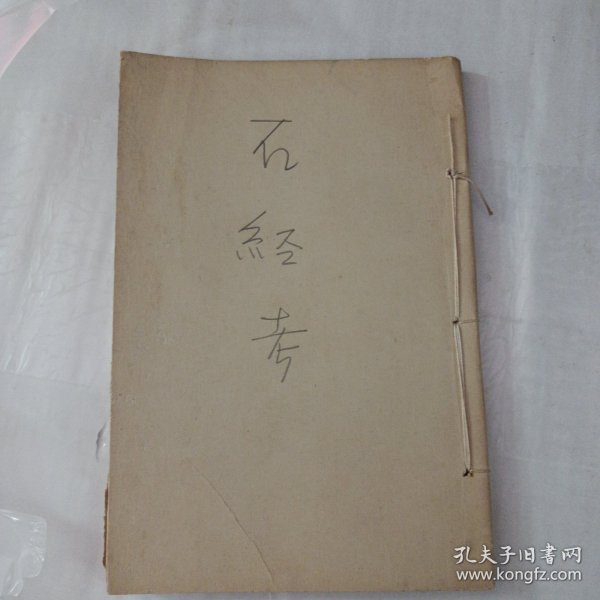 石
経
考
孔夫子旧书网
www.kongfz.com